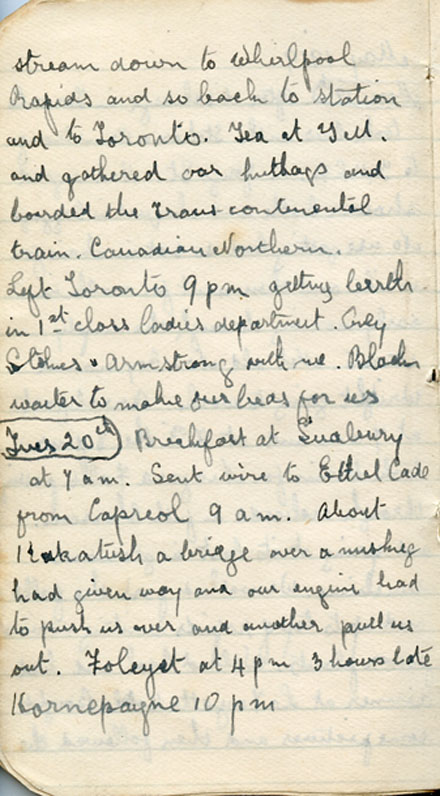 stream down to Whirlpool
Rapids and so back to station
and to Toronto. Tea at Y.M.
and gathered our huthags and
boarded the trans-continental
train. Canadian Northern.
Left Toronto 9 pm getting berth
in 1st class ladies department.
Stokes & Armstrong with me. Black
waiter to make our beds for us
Tues 20th Breakfast at Sudbury
at 7 am. Sent wire to Ethel Cade
from Capreol 9 am. About
Ruskatush a bridge over a muskeg
had given way and our engine had
to push us over and another pull us
out. Foleyet at 4 pm 3 hours late
Hornepayne 10 pm